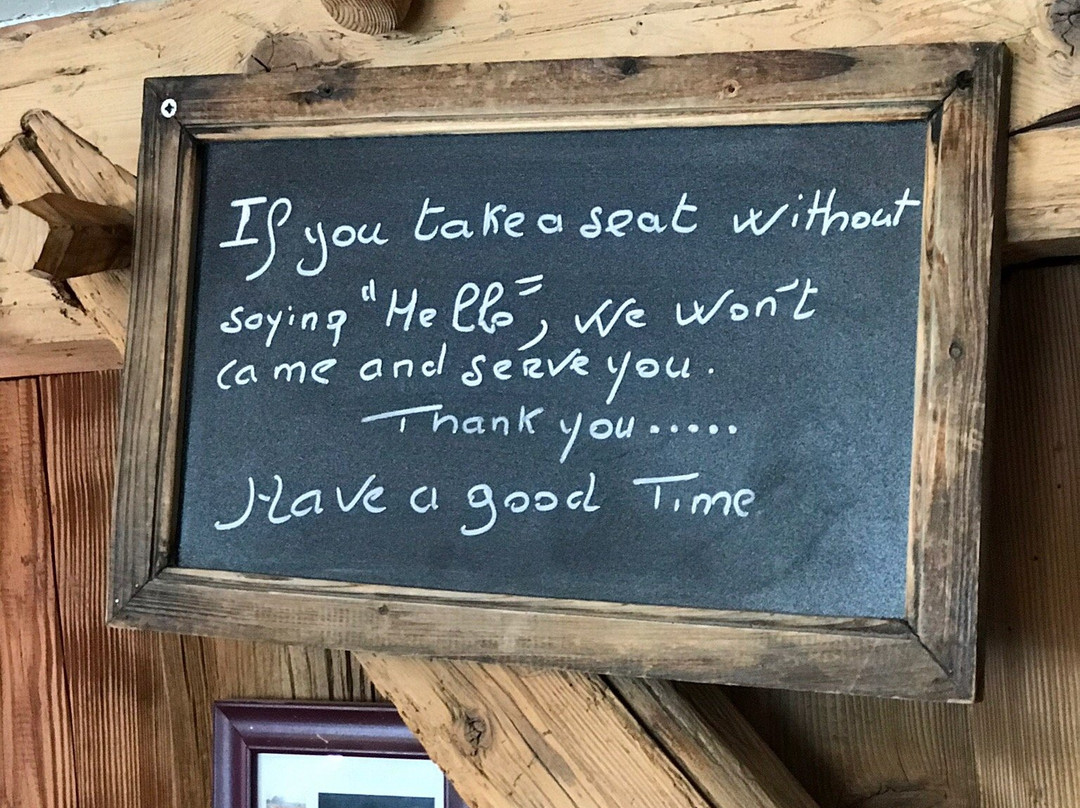 If you take a seat without
saying "Hello", We won't
came and serve you.
Thank you.....
Have a good Time